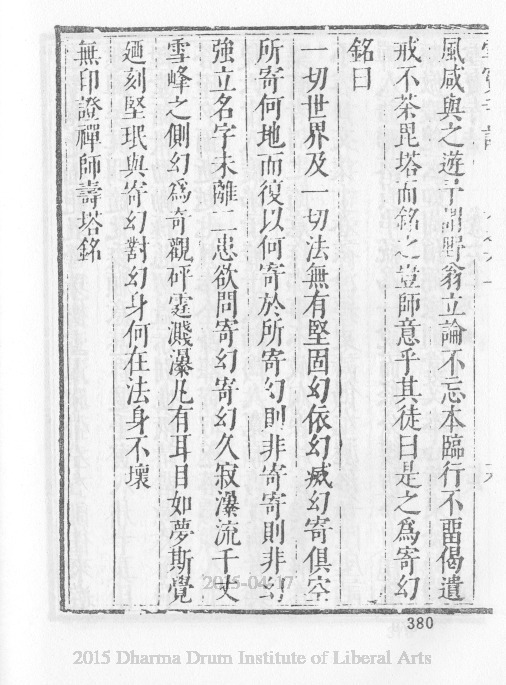 風咸與之遊予聞野翁立論不忘本臨行不畱偈遺
戒不茶毘塔而銘之豈師意乎其徒曰是之為寄幻
銘曰
一切世界及一切法無有堅固幻依幻臧幻寄俱空
所寄何地而復以何寄於所寄幻則非寄寄則非幻
強立名字未離二患欲問寄幻寄幻久寂瀑流千丈
雪峰之側幻為奇觀砰霆濺瀑凡有耳目如夢斯覺
廼刻堅珉與寄幻對幻身何在法身不壞
無印證禪師壽塔銘
2015-04-17
380
2015 Dharma Drum Institute of Liberal Arts